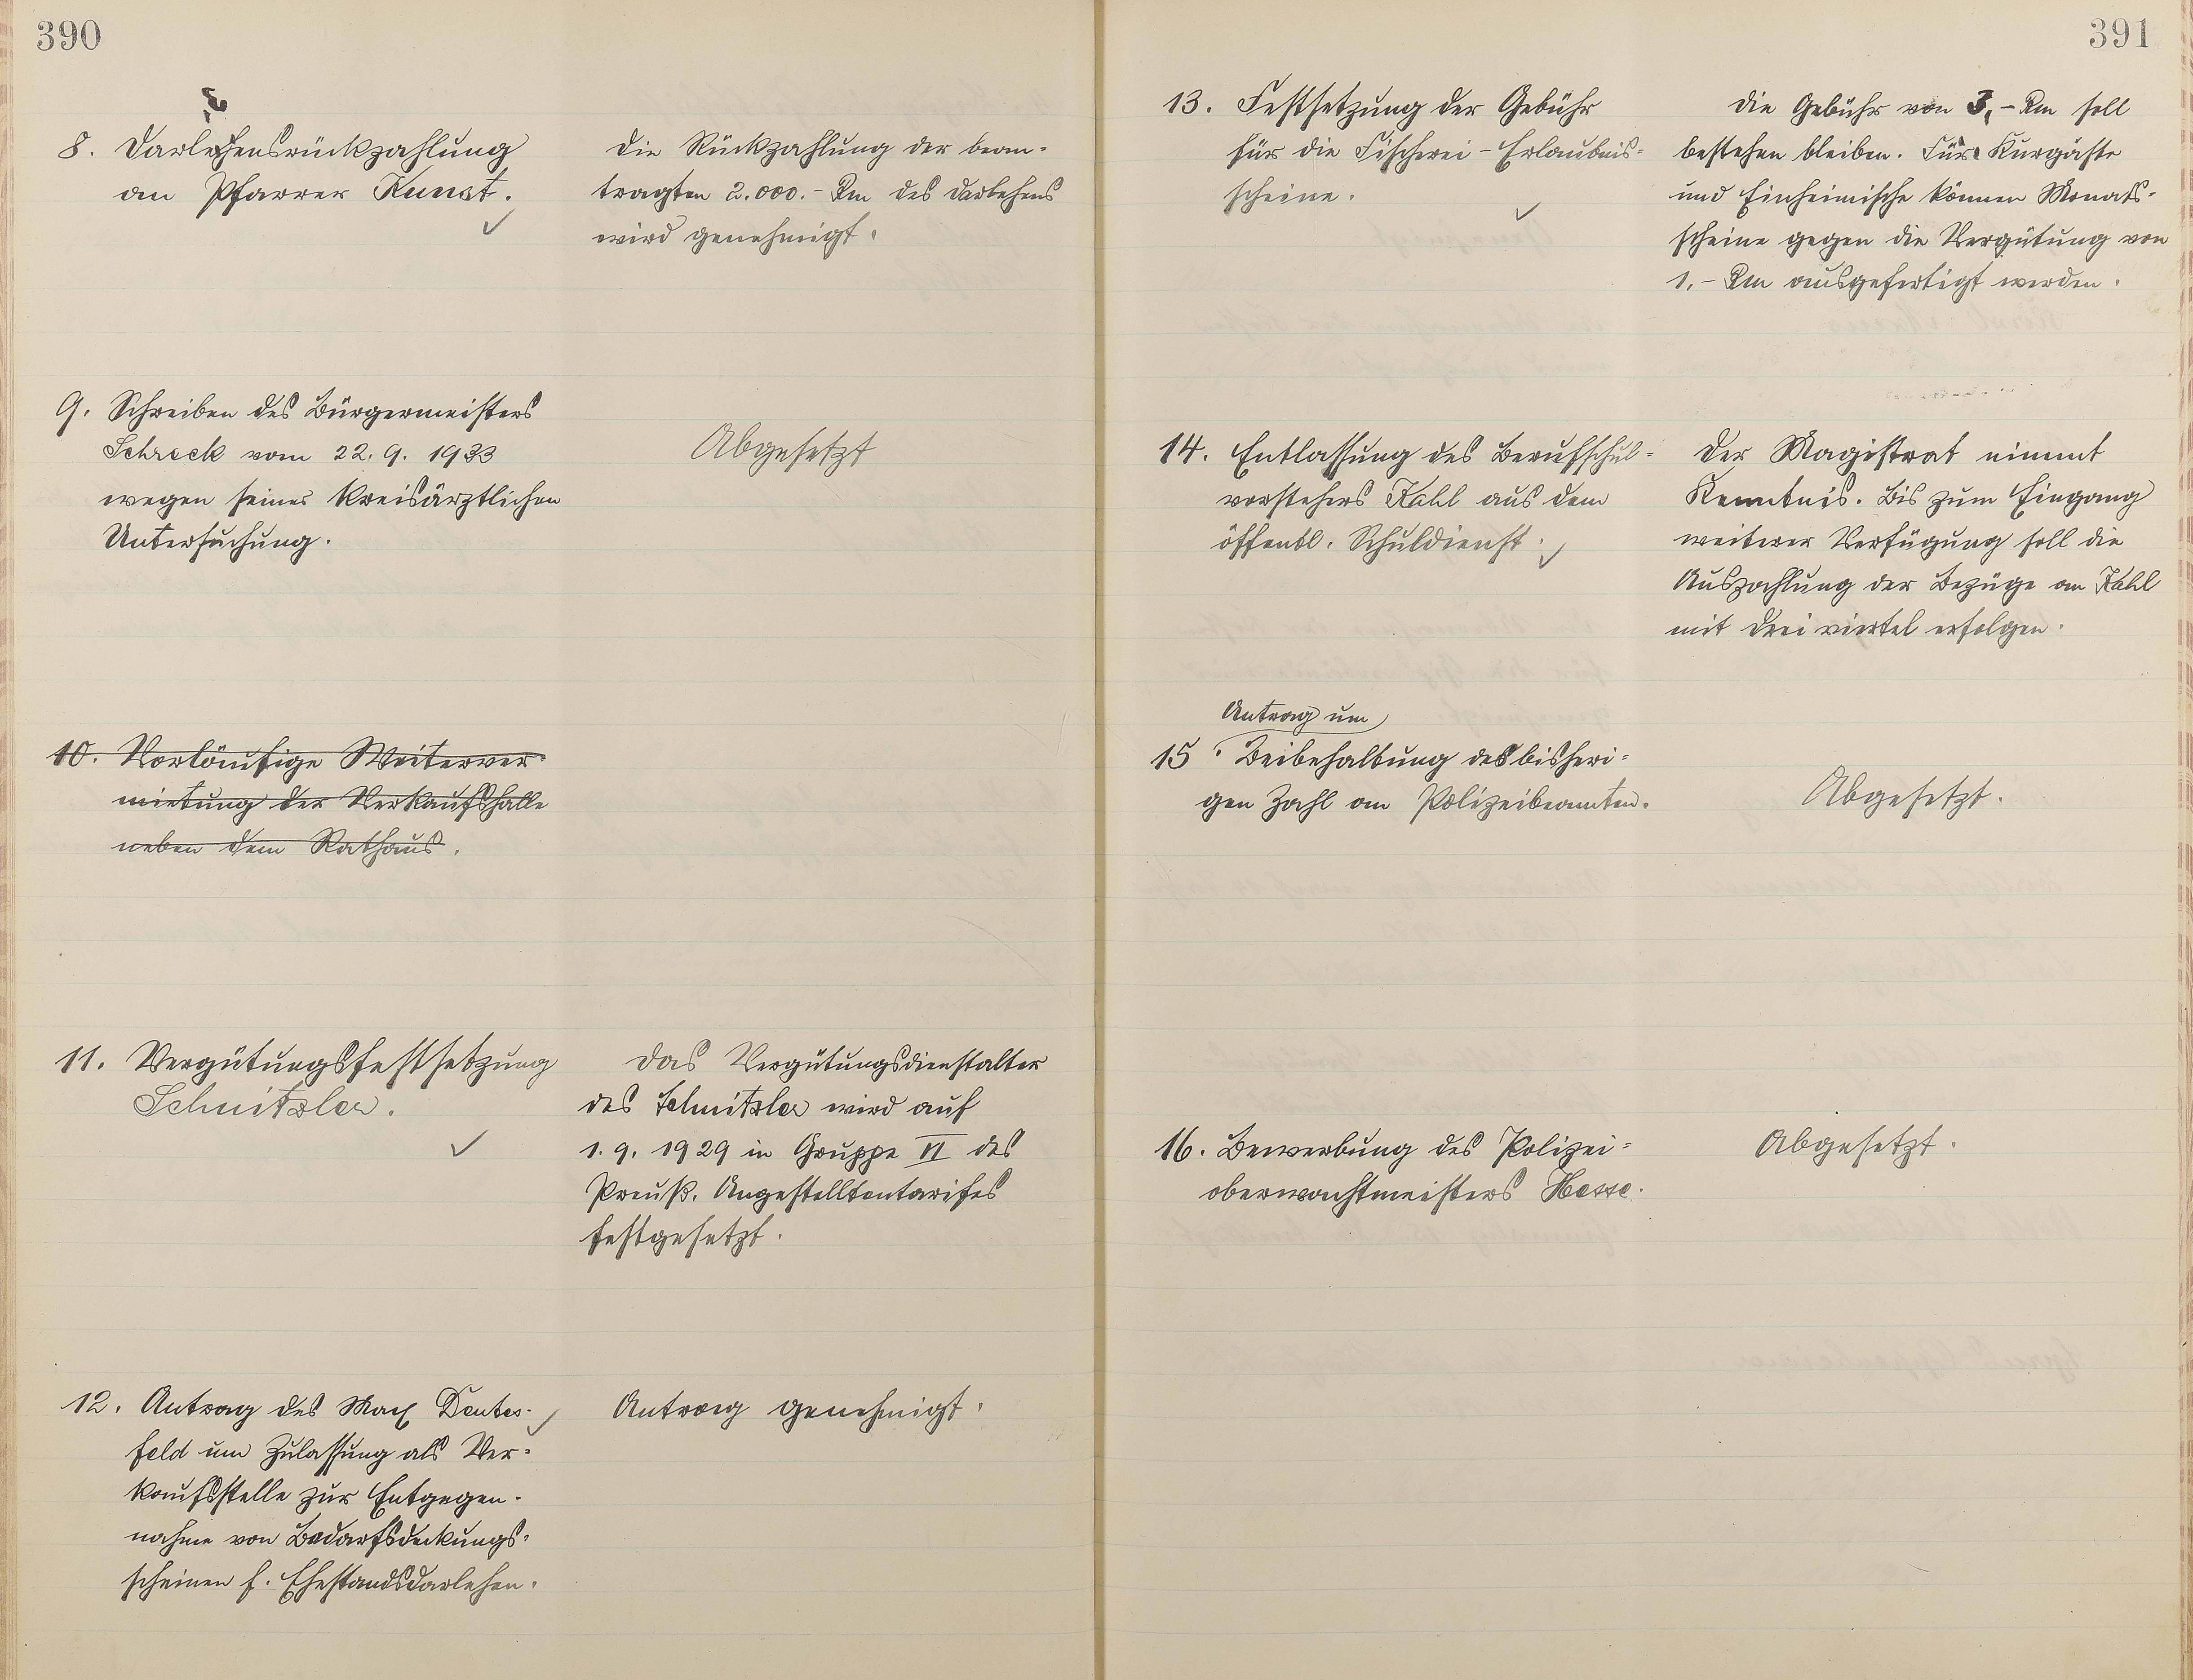 390
8. Darlehensrückzahlung
an Pfarrer Kunst.
Die Rückzahlung der bean-
tragten 2.000.- Rm des Darlehens
wird genehmigt.
9. Schreiben des Bürgermeisters
Schreck vom 22. 9. 1933
wegen seiner kreisärztlichen
Untersuchung.
Abgesetzt
10. Vorläufige Weiterver-
mietung der Verkaufshalle
neben dem Rathaus.
11. Vergütungsfestsetzung
Schnitzler.
Das Vergütungsdienstalter
des Schnitzler wird auf
1. 9. 1929 in Gruppe VI des
Preuß. Angestelltentarifes
festgesetzt.
12. Antrag des Max
feld um Zulassung als Ver-
kaufsstelle zur Entgegen-
nahme von Bedarfsdeckungs-
scheinen f. Ehestandsdarlehen.
Antrag genehmigt.
391
13. Festsetzung der Gebühr
für die Fischerei-Erlaubnis-
scheine.
Die Gebühr von 3,- Rm soll
bestehen bleiben. Für Kurgäste
und Einheimische können Monats-
scheine gegen die Vergütung von
1.- Rm ausgefertigt werden.
14. Entlassung des Berufschul-
vorstehers Kahl aus dem
öffentl. Schuldienst.
Der Magistrat nimmt
Kenntnis. Bis zum Eingang
weiterer Verfügung soll die
Auszahlung der Bezüge an Kahl
mit drei viertel erfolgen.
Antrag um
15. Beibehaltung des bisheri-
gen Zahl an Polizeibeamten.
Abgesetzt.
16. Bewerbung des Polizei-
oberwachtmeisters Hesse.
Abgesetzt.